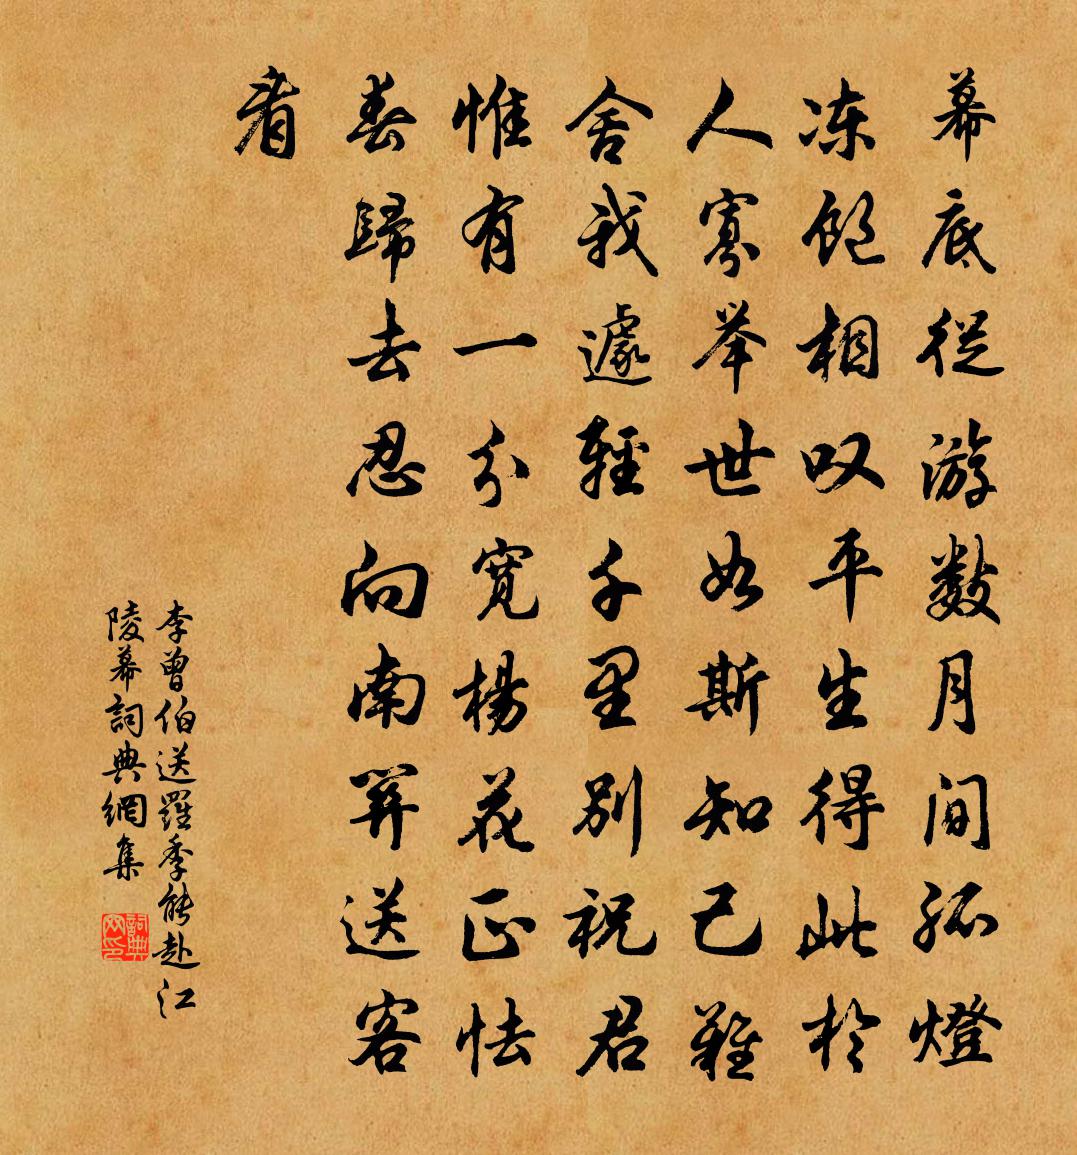 幕底從游數月間孤燈
凍飽相叹平生得此於
人寡举世如斯知己難
舍我遽輕千里別祝君
惟有一分寬楊花正怯
春歸去忍向南送客
看
李曾伯送羅季能赴江
陵幕詞典網集
詞典
网印